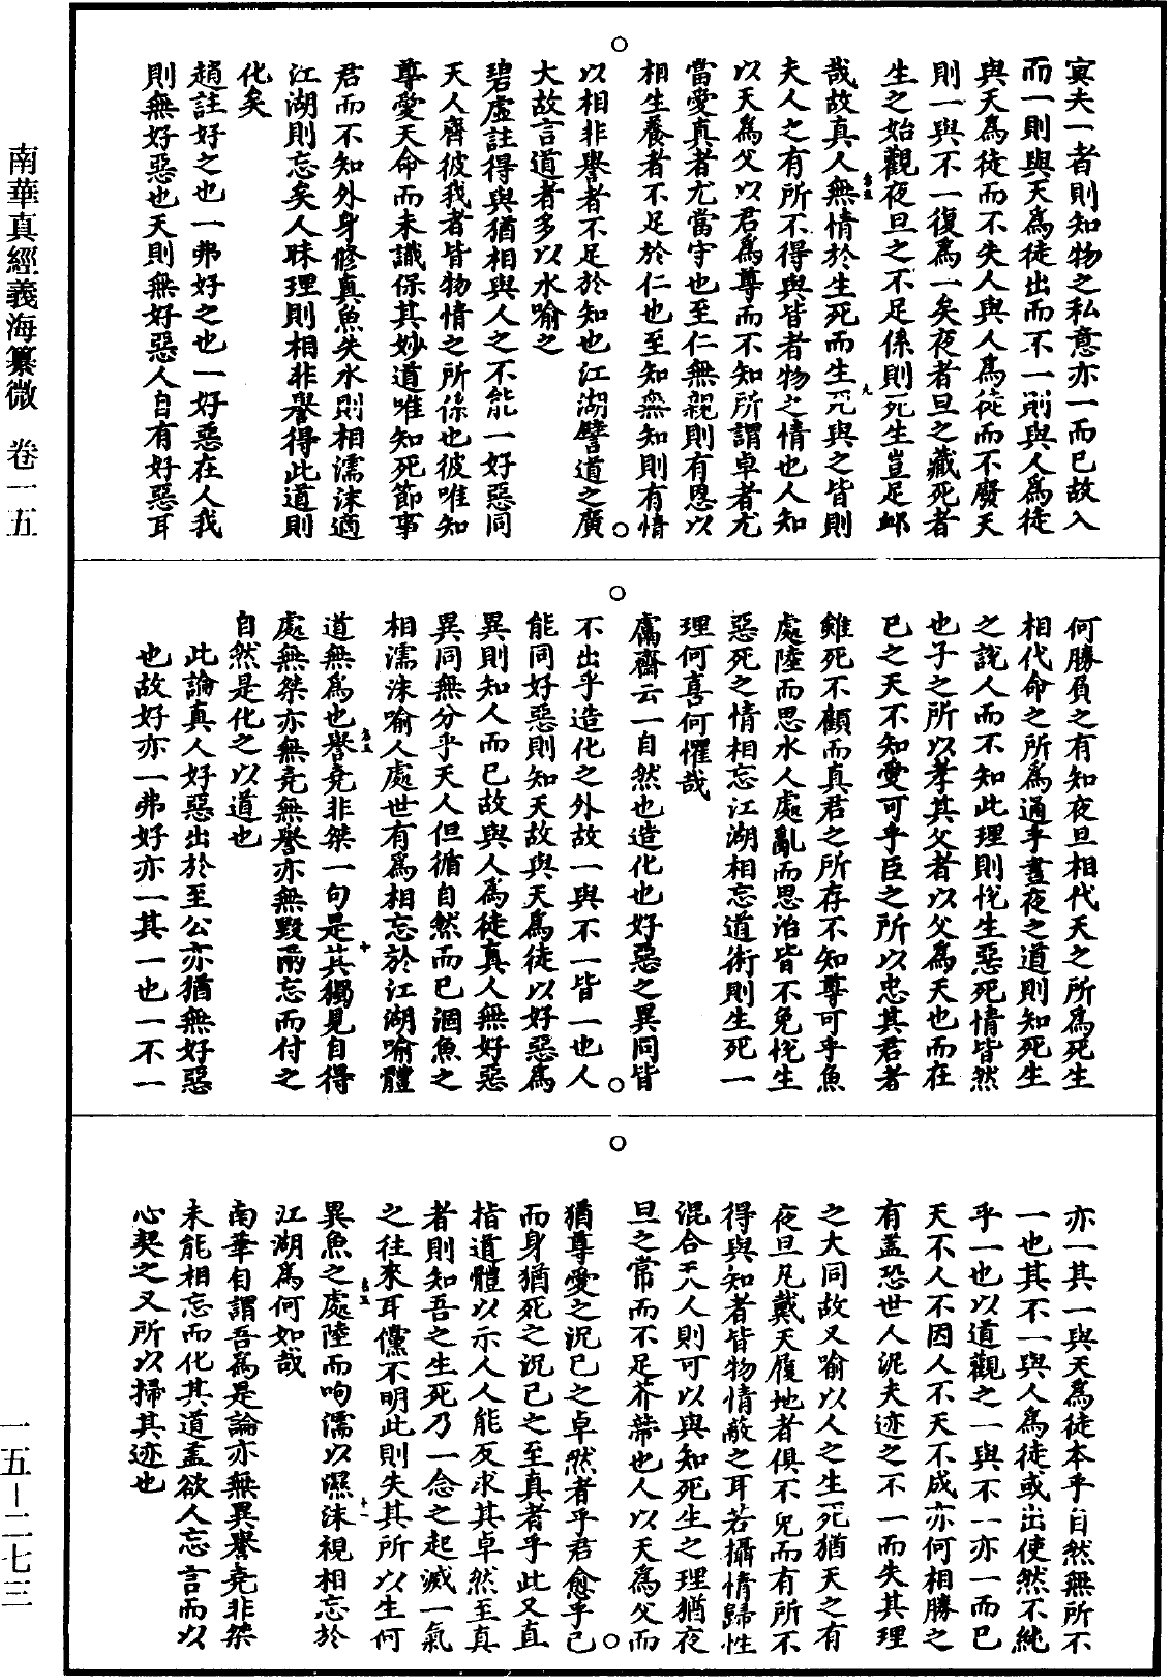 南華真經義海纂微　卷一五
一五—二七三
寞夫一者則知物之私意亦一而已故入
而一則與天為徒出而不一則與人為徒
與天為徒而不失人與人為徒而不廢天
則一與不一復為一矣夜者旦之藏死者
生之始觀夜旦之不足係則死生豈足卹
哉故真人無情於生死而生死與之皆則
夫人之有所不得與皆者物之情也人知
以天為父以君為尊而不知所謂卓者尤
當愛真者尤當守也至仁無親則有恩以
相生養者不足於仁也至知無知則有情
以相非譽者不足於知也江湖譬道之廣
大故言道者多以水喻之
碧虛註得與猶相與人之不能一好惡同
天人齊彼我者皆物情之所係也彼唯知
尊愛天命而未識保其妙道唯知死節事
君而不知外身修真魚失水則相濡沫適
江湖則忘矣人昧理則相非譽得此道則
化矣
趙註好之也一弗好之也一好惡在人我
則無好惡也天則無好惡人自有好惡耳
何勝負之有知夜旦相代天之所為死生
相代命之所為通乎晝夜之道則知死生
之說人而不知此理則悅生惡死情皆然
也子之所以孝其父者以父為天也而在
已之天不知愛可乎臣之所以忠其君者
雖死不顧而真君之所存不知尊可乎魚
處陸而思水人處亂而思治皆不免悅生
惡死之情相忘江湖相忘道術則生死一
理何喜何懼哉
鬳齋云一自然也造化也好惡之異同皆
不出乎造化之外故一與不一皆一也人
能同好惡則知天故與天為徒以好惡為
異則知人而已故與人為徒真人無好惡
異同無分乎天人但循自然而已涸魚之
相濡沫喻人處世有為相忘於江湖喻體
道無為也譽堯非桀一句是其獨見自得
處無桀亦無堯無譽亦無毀兩忘而付之
自然是化之以道也
此論真人好惡出於至公亦猶無好惡
也故好亦一弗好亦一其一也一不一
亦一其一與天為徒本乎自然無所不
一也其不一與人為徒或出使然不純
乎一也以道觀之一與不一亦一而已
天不人不因人不天不成亦何相勝之
有蓋恐世人泥夫迹之不一而失其理
之大同故又喻以人之生死猶天之有
夜旦凡戴天履地者俱不免而有所不
得與知者皆物情蔽之耳若攝情歸性
混合天人則可以與知死生之理猶夜
旦之常而不足芥蔕也人以天為父而
猶尊愛之況已之卓然者乎君愈乎已
而身猶死之況已之至真者乎此又直
指道體以示人人能反求其卓然至真
者則知吾之生死乃一念之起滅一氣
之往來耳儻不明此則失其所以生何
異魚之處陸而呴濡以濕沫視相忘於
江湖為何如哉
南華自謂吾為是論亦無異譽堯非桀
未能相忘而化其道蓋欲人忘言而以
心契之又所以掃其迹也